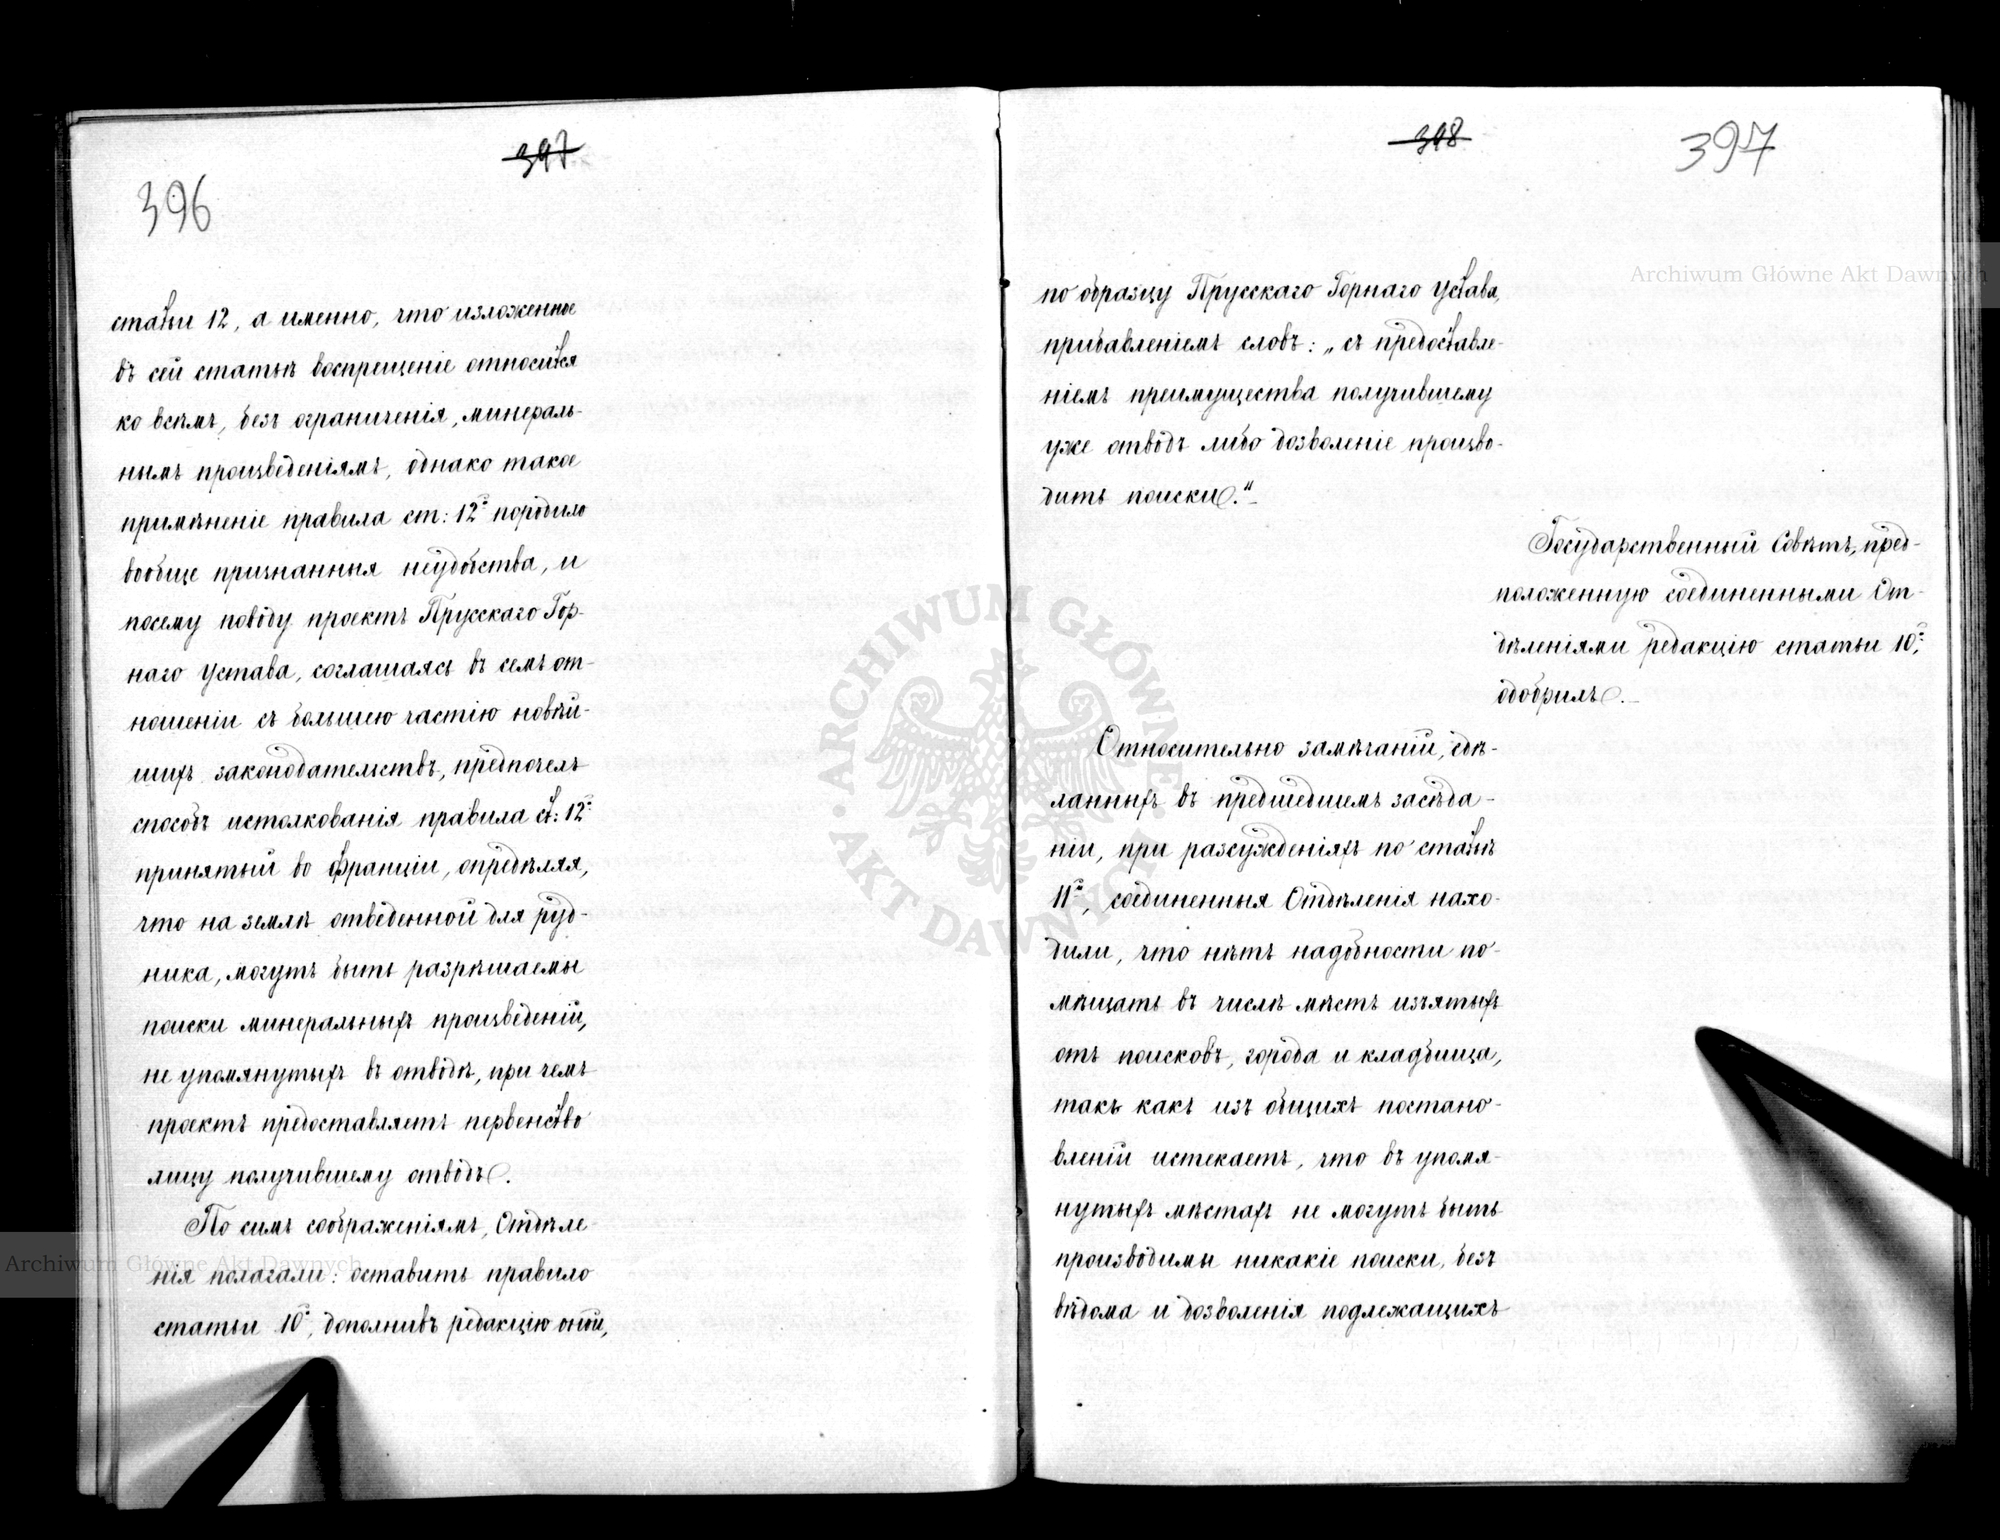 397
396
статьи 12, а именно, что изложенное
въ сей статьѣ воспрещеніе относится
ко всѣмъ, безъ ограниченія, минераль-
нымъ произведеніямъ, однако такое
примѣненіе правила ст: 12й породило
вообще признанныя неудобства, и
посему поводу проектъ Прусскаго Гор-
наго Устава, соглашаясь въ семъ от-
ношеніи съ большею частію новѣй-
шихъ законодательствъ, предпочелъ
способъ истолкованія правила ст: 12й
принятый во Франціи, опредѣляя,
что на землѣ отведенной для руд-
ника, могутъ быть разрѣшаемы
поиски минеральныхъ произведеній,
не упомянутыхъ въ отводѣ, при чемъ
проектъ предоставляетъ первенство
лицу получившему отводъ.
По симъ соображеніямъ, Отдѣле-
нія полагали: оставить правило
статьи 10й, дополнивъ редакцію оной,
398
397
по образцу Прусскаго Горнаго Устава,
прибавленіемъ словъ: „съ предоставле-
ніемъ преимущества получившему
уже отводъ либо дозволеніе произво-
дить поиски."
Государственный Совѣтъ, пред-
положенную соединенными От-
дѣленіями редакцію статьи 10й,
одобрилъ.
Относительно замѣчаній, сдѣ-
ланныхъ въ предшедшемъ засѣда-
ніи, при разсужденіяхъ по статьѣ
11й, соединенныя Отдѣленія нахо-
дили, что нѣтъ надобности по-
мѣщать въ числѣ мѣстъ изъятыхъ
отъ поисковъ, города и кладбища,
такъ какъ изъ общихъ постано-
вленій истекаетъ, что въ упомя-
нутыхъ мѣстахъ не могутъ быть
производимы никакіе поиски, безъ
вѣдома и дозволенія подлежащихъ
Archiwum Główne Akt Dawnych
Archiwum Główne Akt Dawnych
ARCHIWUM GŁÓWNE AKT DAWNYCH